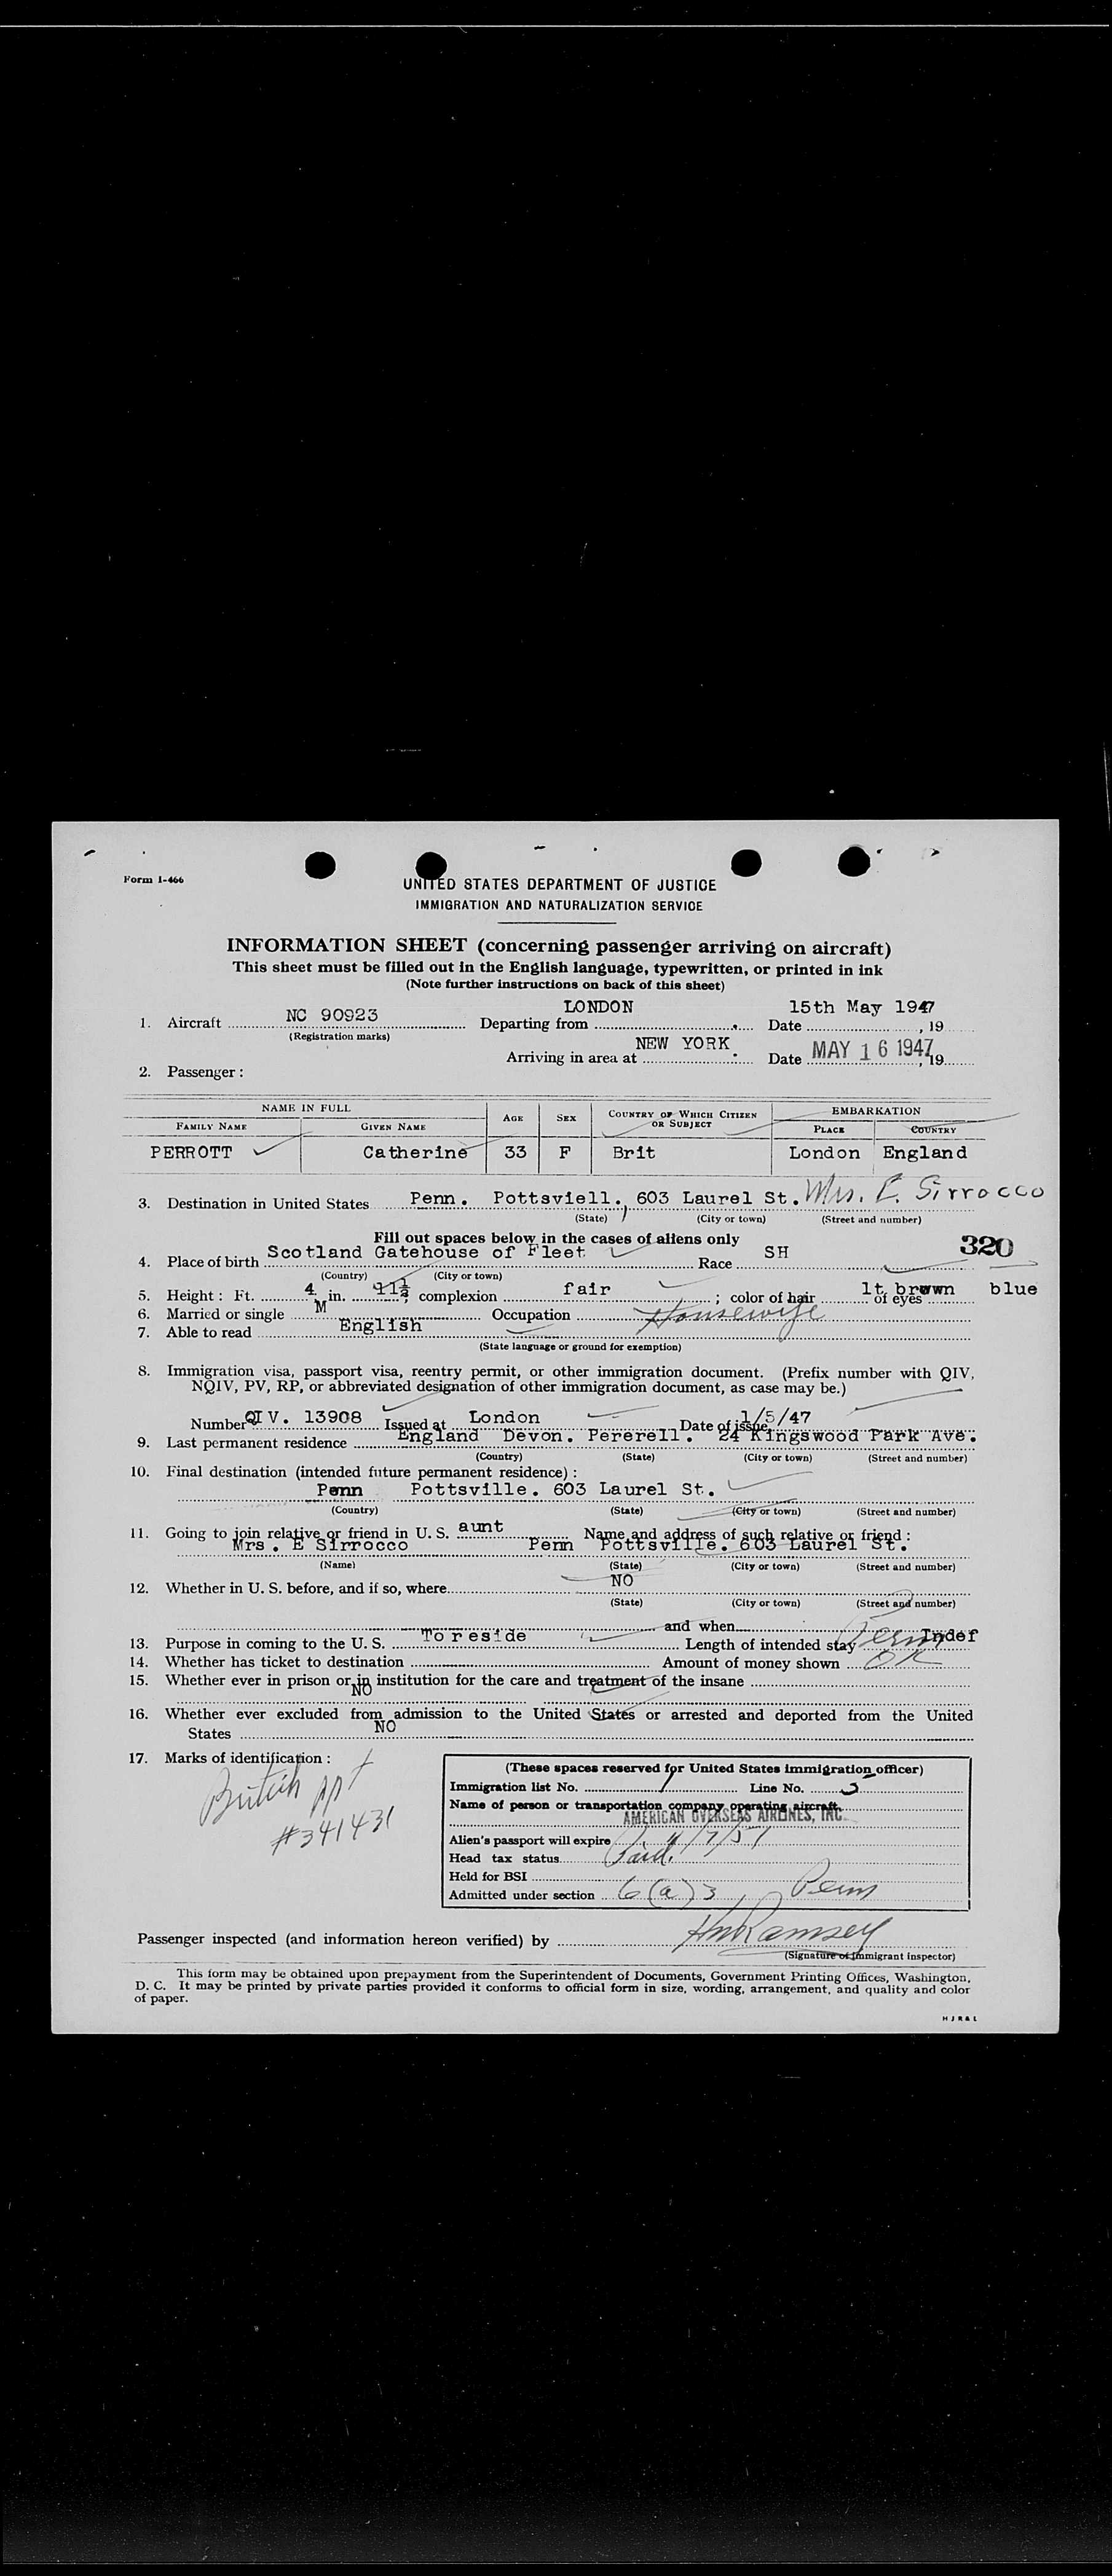 Form I-466
UNITED STATES DEPARTMENT OF JUSTICE
IMMIGRATION AND NATURALIZATION SERVICE
INFORMATION SHEET (concerning passenger arriving on aircraft)
This sheet must be filled out in the English language, typewritten, or printed in ink
(Note further instructions on back of this sheet)
1. Aircraft NC 90923 Departing from LONDON Date 15th May 1947, 19
(Registration marks)
Arriving in area at NEW YORK Date MAY 16 1947, 19
2. Passenger:
NAME IN FULL AGE SEX COUNTRY OF WHICH CITIZEN OR SUBJECT EMBARKATION
FAMILY NAME GIVEN NAME PLACE COUNTRY
PERROTT Catherine 33 F Brit London England
3. Destination in United States Penn. Pottsviell. 603 Laurel St. Mrs. E. Sirrocco
(State) (City or town) (Street and number)
Fill out spaces below in the cases of aliens only
4. Place of birth Scotland Gatehouse of Fleet Race SH 320
(Country) (City or town)
5. Height: Ft. 4 in. 11½; complexion fair; color of hair lt brown of eyes blue
6. Married or single M Occupation Housewife
7. Able to read English
(State language or ground for exemption)
8. Immigration visa, passport visa, reentry permit, or other immigration document. (Prefix number with QIV,
NQIV, PV, RP, or abbreviated designation of other immigration document, as case may be.)
Number QIV. 13908 Issued at London Date of issue 1/5/47
9. Last permanent residence England Devon. Pererell. 24 Kingswood Park Ave.
(Country) (State) (City or town) (Street and number)
10. Final destination (intended future permanent residence):
Penn Pottsville. 603 Laurel St.
(Country) (State) (City or town) (Street and number)
11. Going to join relative or friend in U. S. aunt Name and address of such relative or friend:
Mrs. E Sirrocco Penn Pottsville. 603 Laurel St.
(Name) (State) (City or town) (Street and number)
12. Whether in U. S. before, and if so, where NO
(State) (City or town) (Street and number)
and when
13. Purpose in coming to the U. S. To reside Length of intended stay Perm Indef
14. Whether has ticket to destination Amount of money shown OK
15. Whether ever in prison or in institution for the care and treatment of the insane
NO
16. Whether ever excluded from admission to the United States or arrested and deported from the United
States NO
17. Marks of identification:
British ppt
#341431
(These spaces reserved for United States immigration officer)
Immigration list No. 1 Line No. 3
Name of person or transportation company operating aircraft
AMERICAN OVERSEAS AIRLINES, INC.
Alien's passport will expire
Head tax status Paid.
Held for BSI
Admitted under section 6(a)3, Perm
Passenger inspected (and information hereon verified) by Ramsey
(Signature of Immigrant Inspector)
This form may be obtained upon prepayment from the Superintendent of Documents, Government Printing Offices, Washington,
D. C. It may be printed by private parties provided it conforms to official form in size, wording, arrangement, and quality and color
of paper.
H J R & L